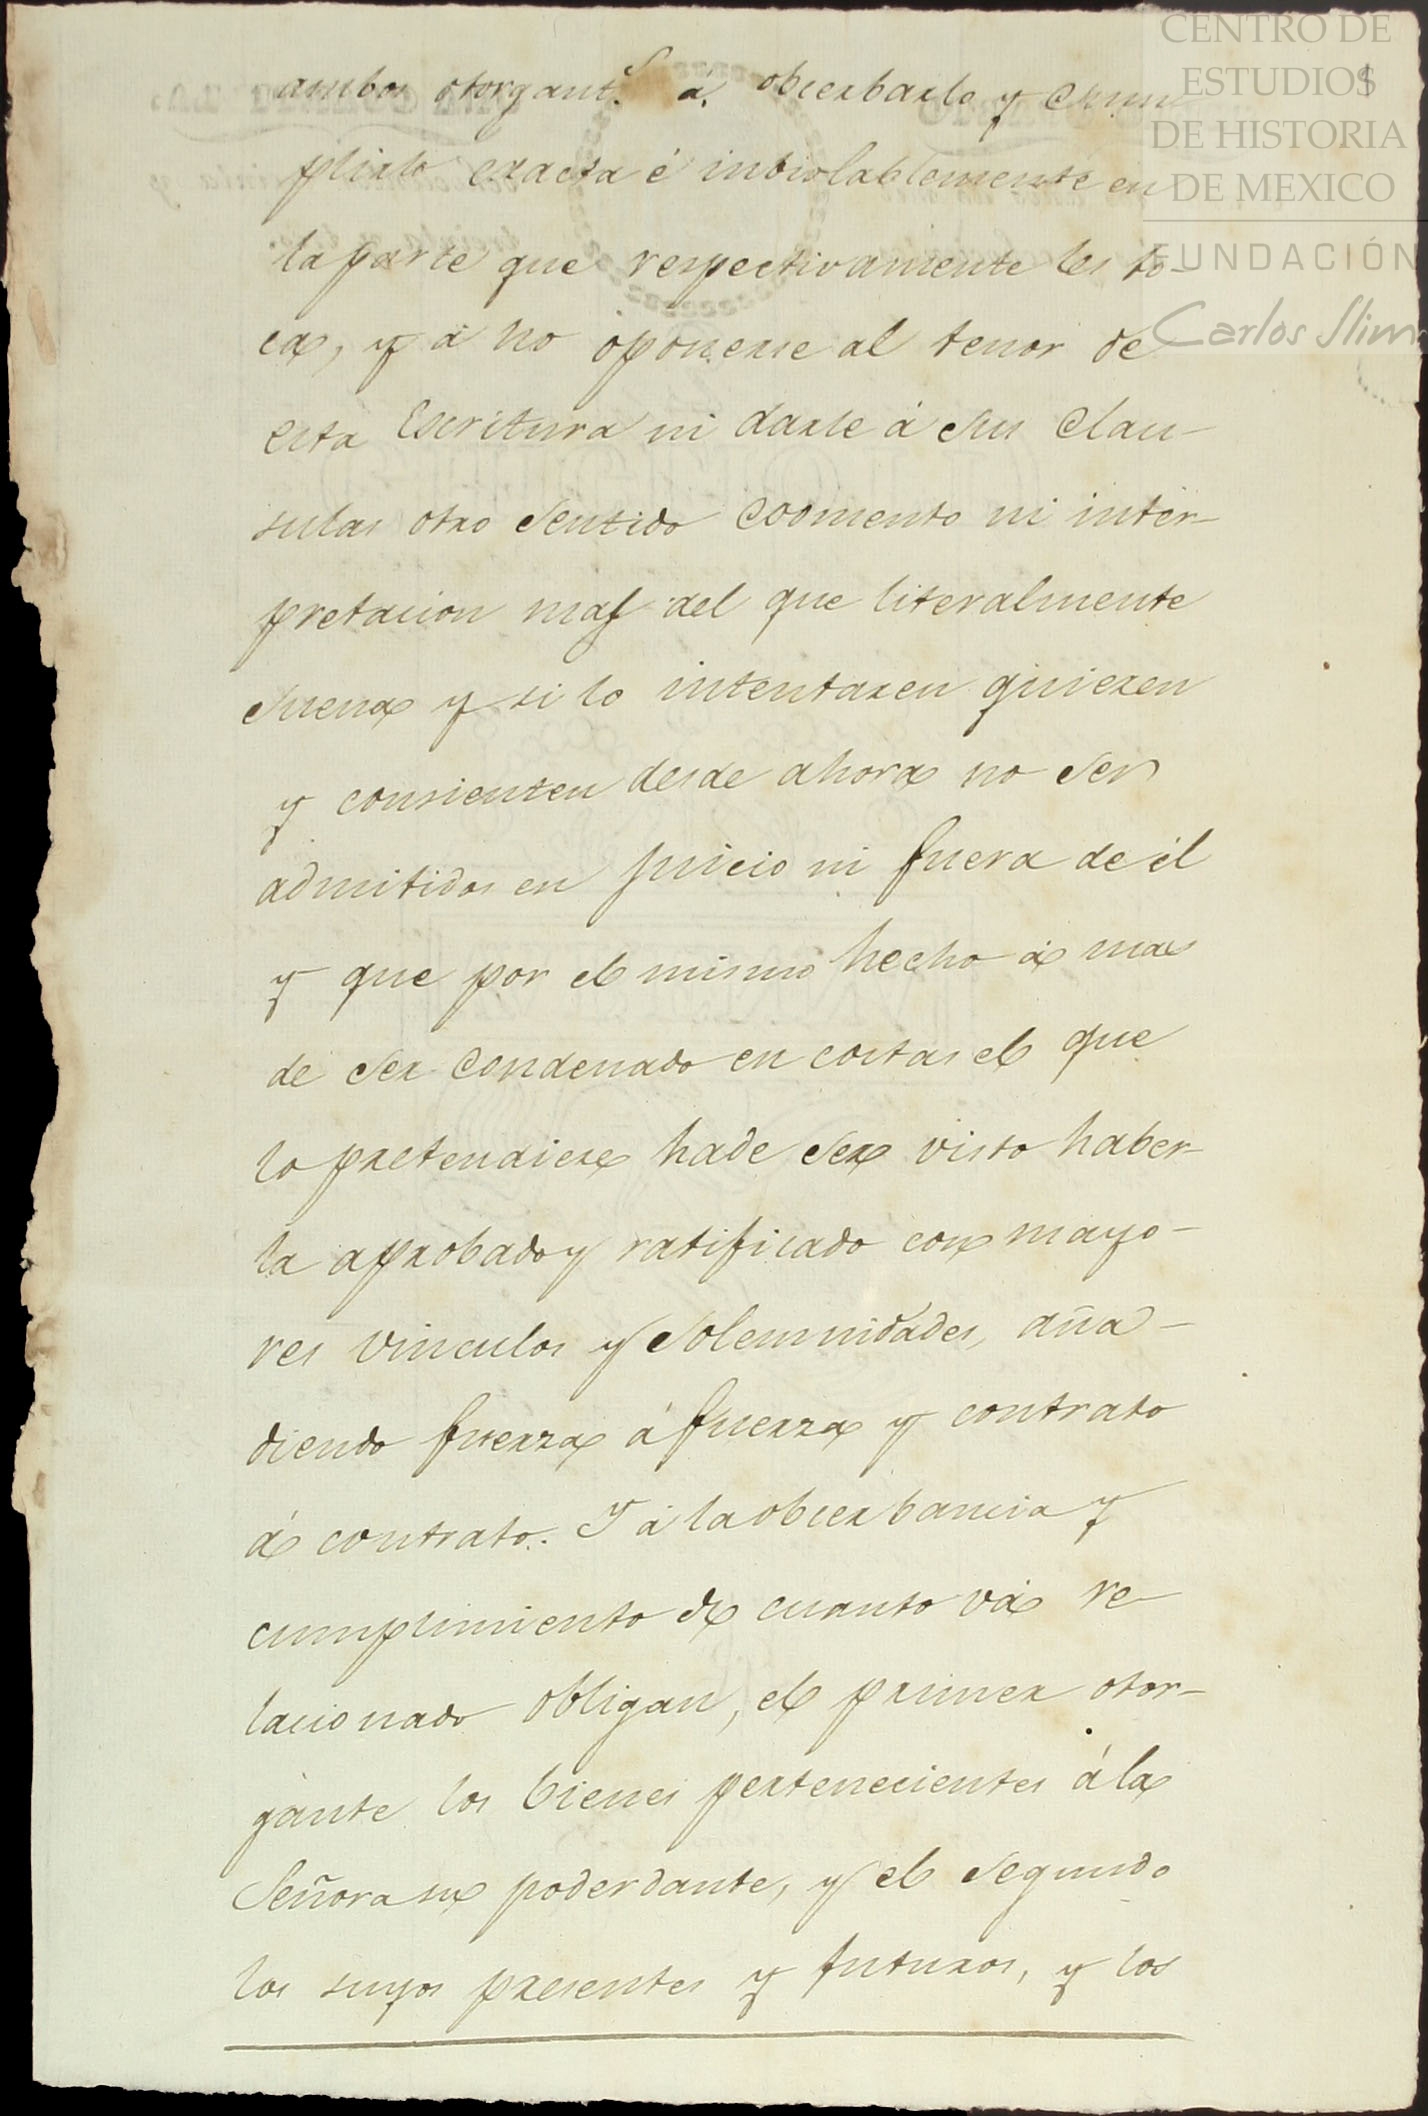 CENTRO DE
ESTUDIOS
DE HISTORIA
DE MEXICO
FUNDACIÓN
Carlos Slim
ambos otorgant.s á obserbarlo y cum
plirlo exacta é inbiolablemente en
la parte que respectivamente les to-
ca, y á no oponerse al tenor de
esta Escritura ni darle á sus clau-
sulas otro sentido coomento ni inter-
pretacion mas del que literalmente
suena y si lo intentaren quieren
y consienten desde ahora no ser
admitidos en juicio ni fuera de él
y que por el mismo hecho á mas
de ser condenado en costas el que
lo pretendiere hade ser visto haber-
la aprobado y ratificado con mayo-
res vinculos y solemnidades, aña-
diendo fuerza á fuerza y contrato
á contrato. Y á la obserbancia y
cumplimiento de cuanto vá re-
lacionado obligan, el primer otor-
gante los bienes pertenecientes á la
Señora su poderdante, y el segundo
los suyos presentes y futuros, y los